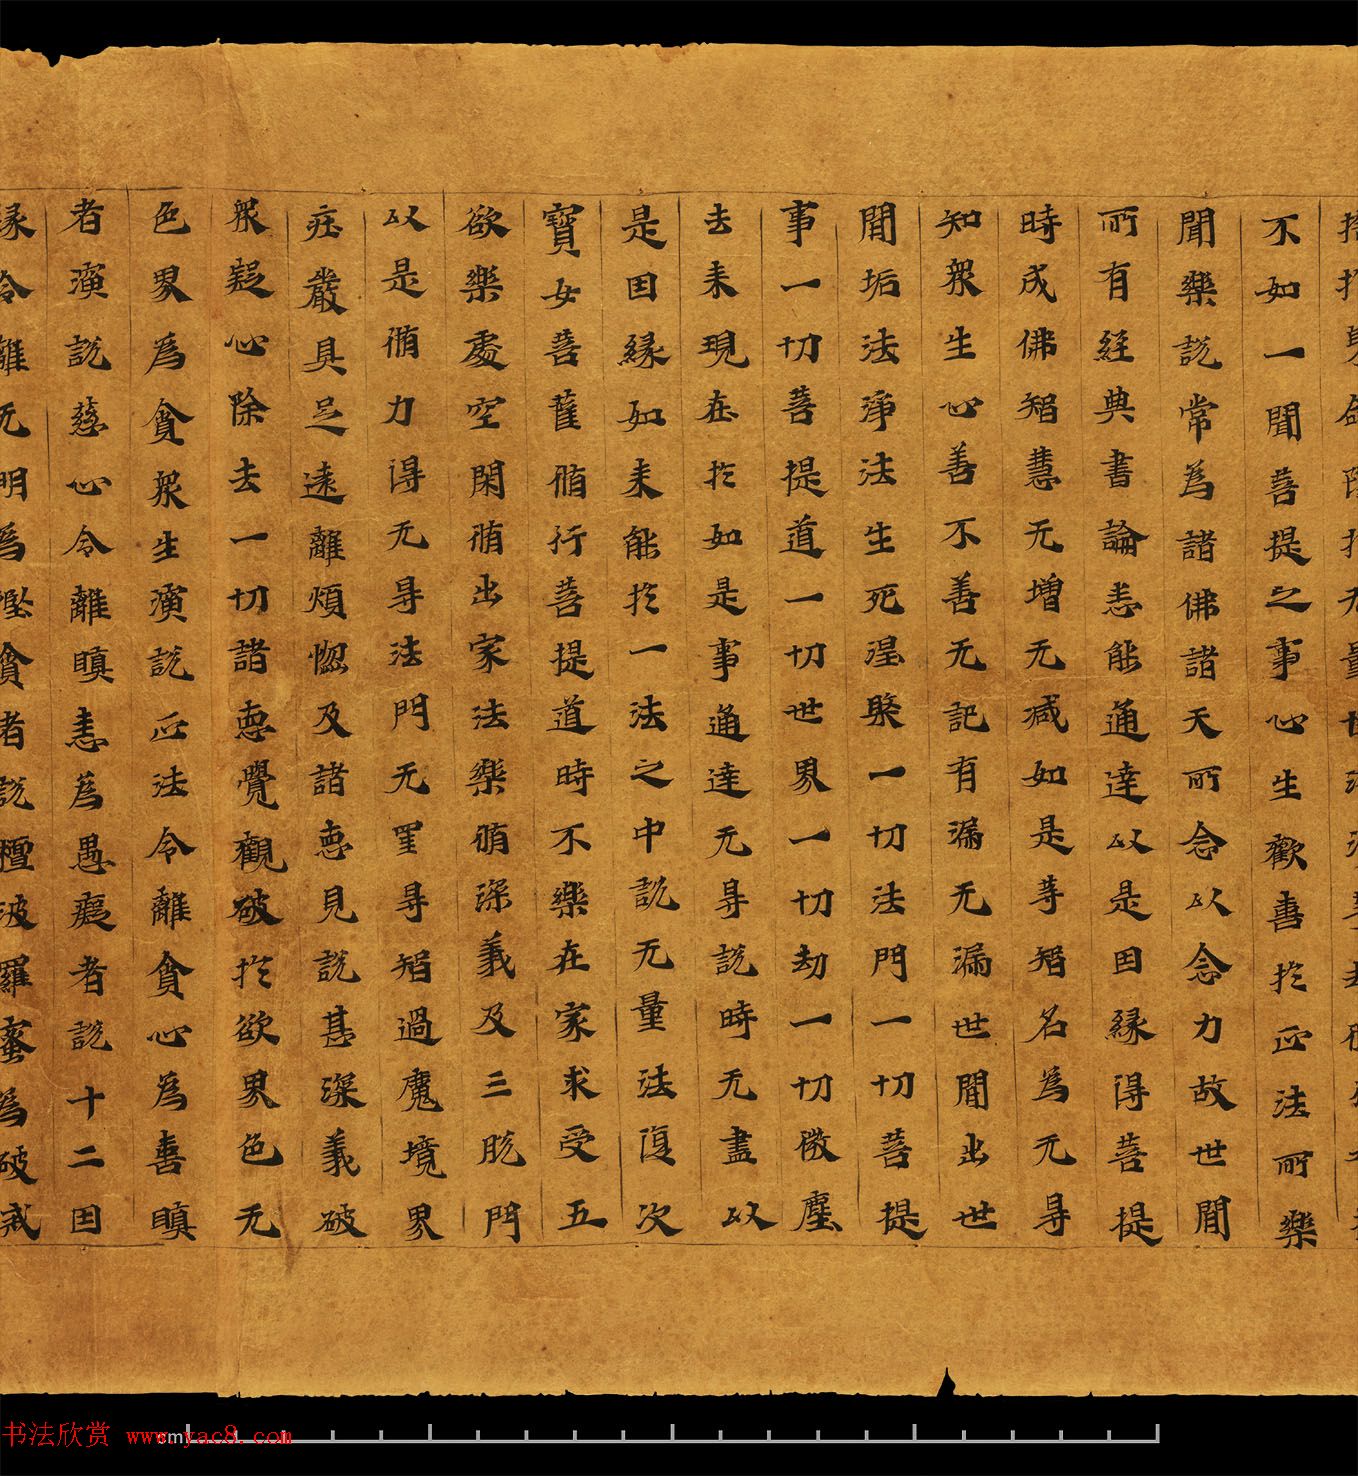 不如一聞菩提之事心生歡喜扵正法所樂
聞樂説常為諸佛諸天所念以念力故世間
所有經典書論悉能通達以是因緣得菩提
時成佛智慧无增无减如是等智名為无㝵
知衆生心善不善无記有漏无漏世間出世
間垢法淨法生死涅槃一切法門一切菩提
事一切菩提道一切世界一切劫一切微塵
去来現在扵如是事通達无㝵説時无盡以
是因緣如来能扵一法之中説无量法復次
寶女菩薩脩行菩提道時不樂在家求受五
欲樂處空閑脩出家法樂脩深義及三脱門
以是脩力得无㝵法門无罣㝵智過魔境界
莊嚴具足遠離煩惚及諸悪見説甚深義破
衆疑心除去一切諸悪覺觀破扵欲界色无
色界為貪衆生演説正法令離貪心為喜瞋
者演説慈心令離瞋恚為愚癡者説十二因
緣令離无明為慳貪者説檀波羅蜜為破戒
書法欣赏 www.yac8.com